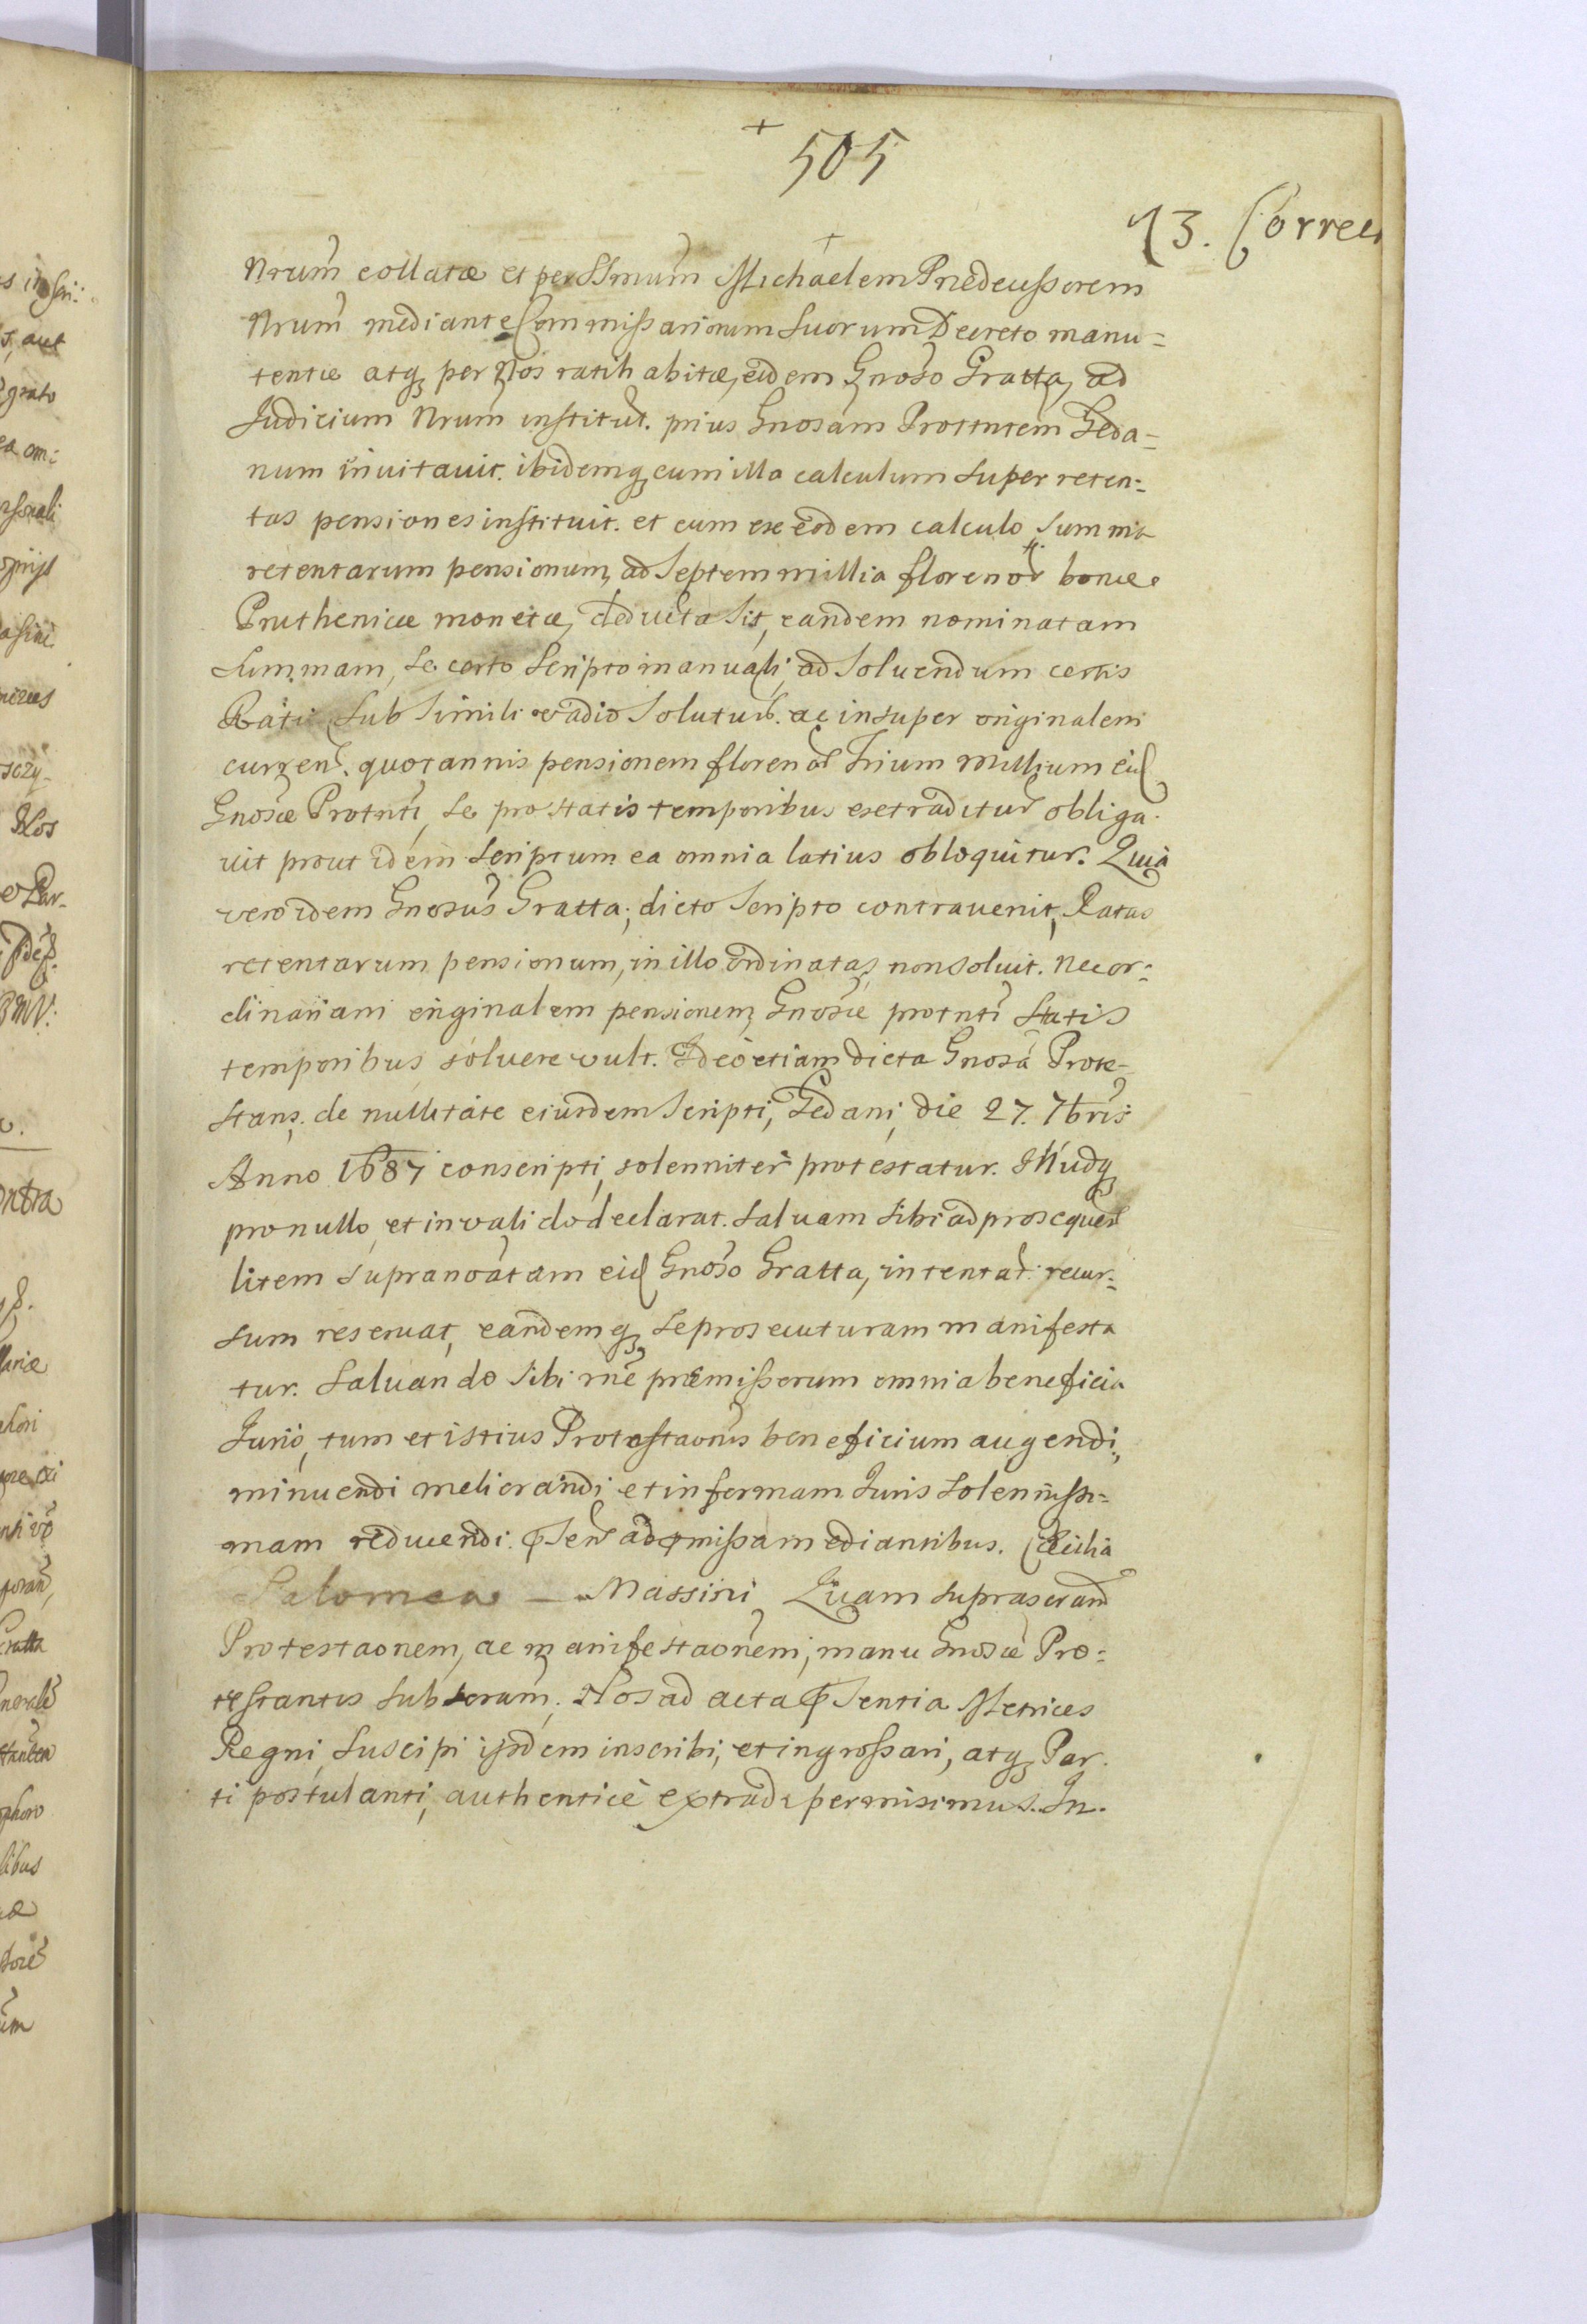 505
13. Correct
Nrum collatæ et per SSmum Michaelem Prædecessorem
Nrum mediante Commissariorum Suorum Decreto manu=
tentæ atq per Nos ratihabitæ, eidem Gnoso Gratta, ad
Judicium Nrum institut. prius Gnosam Prottntem Geda=
num invitavit. ibidemq cum illa calculum super reten=
tas pensiones instituit. et cum ex eodem calculo, summa
retentarum pensionum, ad septem millia florenor bonæ
Pruthenicæ monetæ, deducta sit, eandem nominatam
summam, se certo scripto manuali, ad solvendum certis
Ratis sub simili vadio solutur. ac insuper originalem
curren. quotannis pensionem floren Trium Millium eid
Gnosæ Protnti, se pro statis temporibus extraditur obliga
vit prout idem scriptum ea omnia latius obloquitur. Quia
vero idem Gnosus Gratta, dicto scripto contravenit, Ratas
retentarum pensionum, in illo ordinatas, non solvit. nec or=
dinariam originalem pensionem, Gnosæ protnti statis
temporibus solvere vult. Ideo etiam dicta Gnosa Prote=
stans, de nullitate eiusdem scripti, Gedani, die 27. 7bris
Anno 1687 conscripti, solenniter protestatur. Illudq
pro nullo, et invalido declarat. salvam sibi ad prosequen
litem supranoatam eid Gnoso Gratta, intentat. recur=
sum reservat, eandemq se prosecuturam manifesta
tur. Salvando sibi rne præmissorum omnia beneficia
Juris, tum et istius Protestaonis beneficium augendi,
minuendi meliorandi et in formam Juris solenissi=
mam reducendi. Psen ad pmissa mediantibus. Cæcilia
Salomea Massini Quam suprascram
Protestaonem, ac manifestaonem, manu Gnosæ Pro=
testantis subscram. Nos ad acta Psentia Metrices
Regni, suscipi ijsdem inscribi, et ingrossari, atq Par.
ti postulanti, authentice extradi permisimus. In.